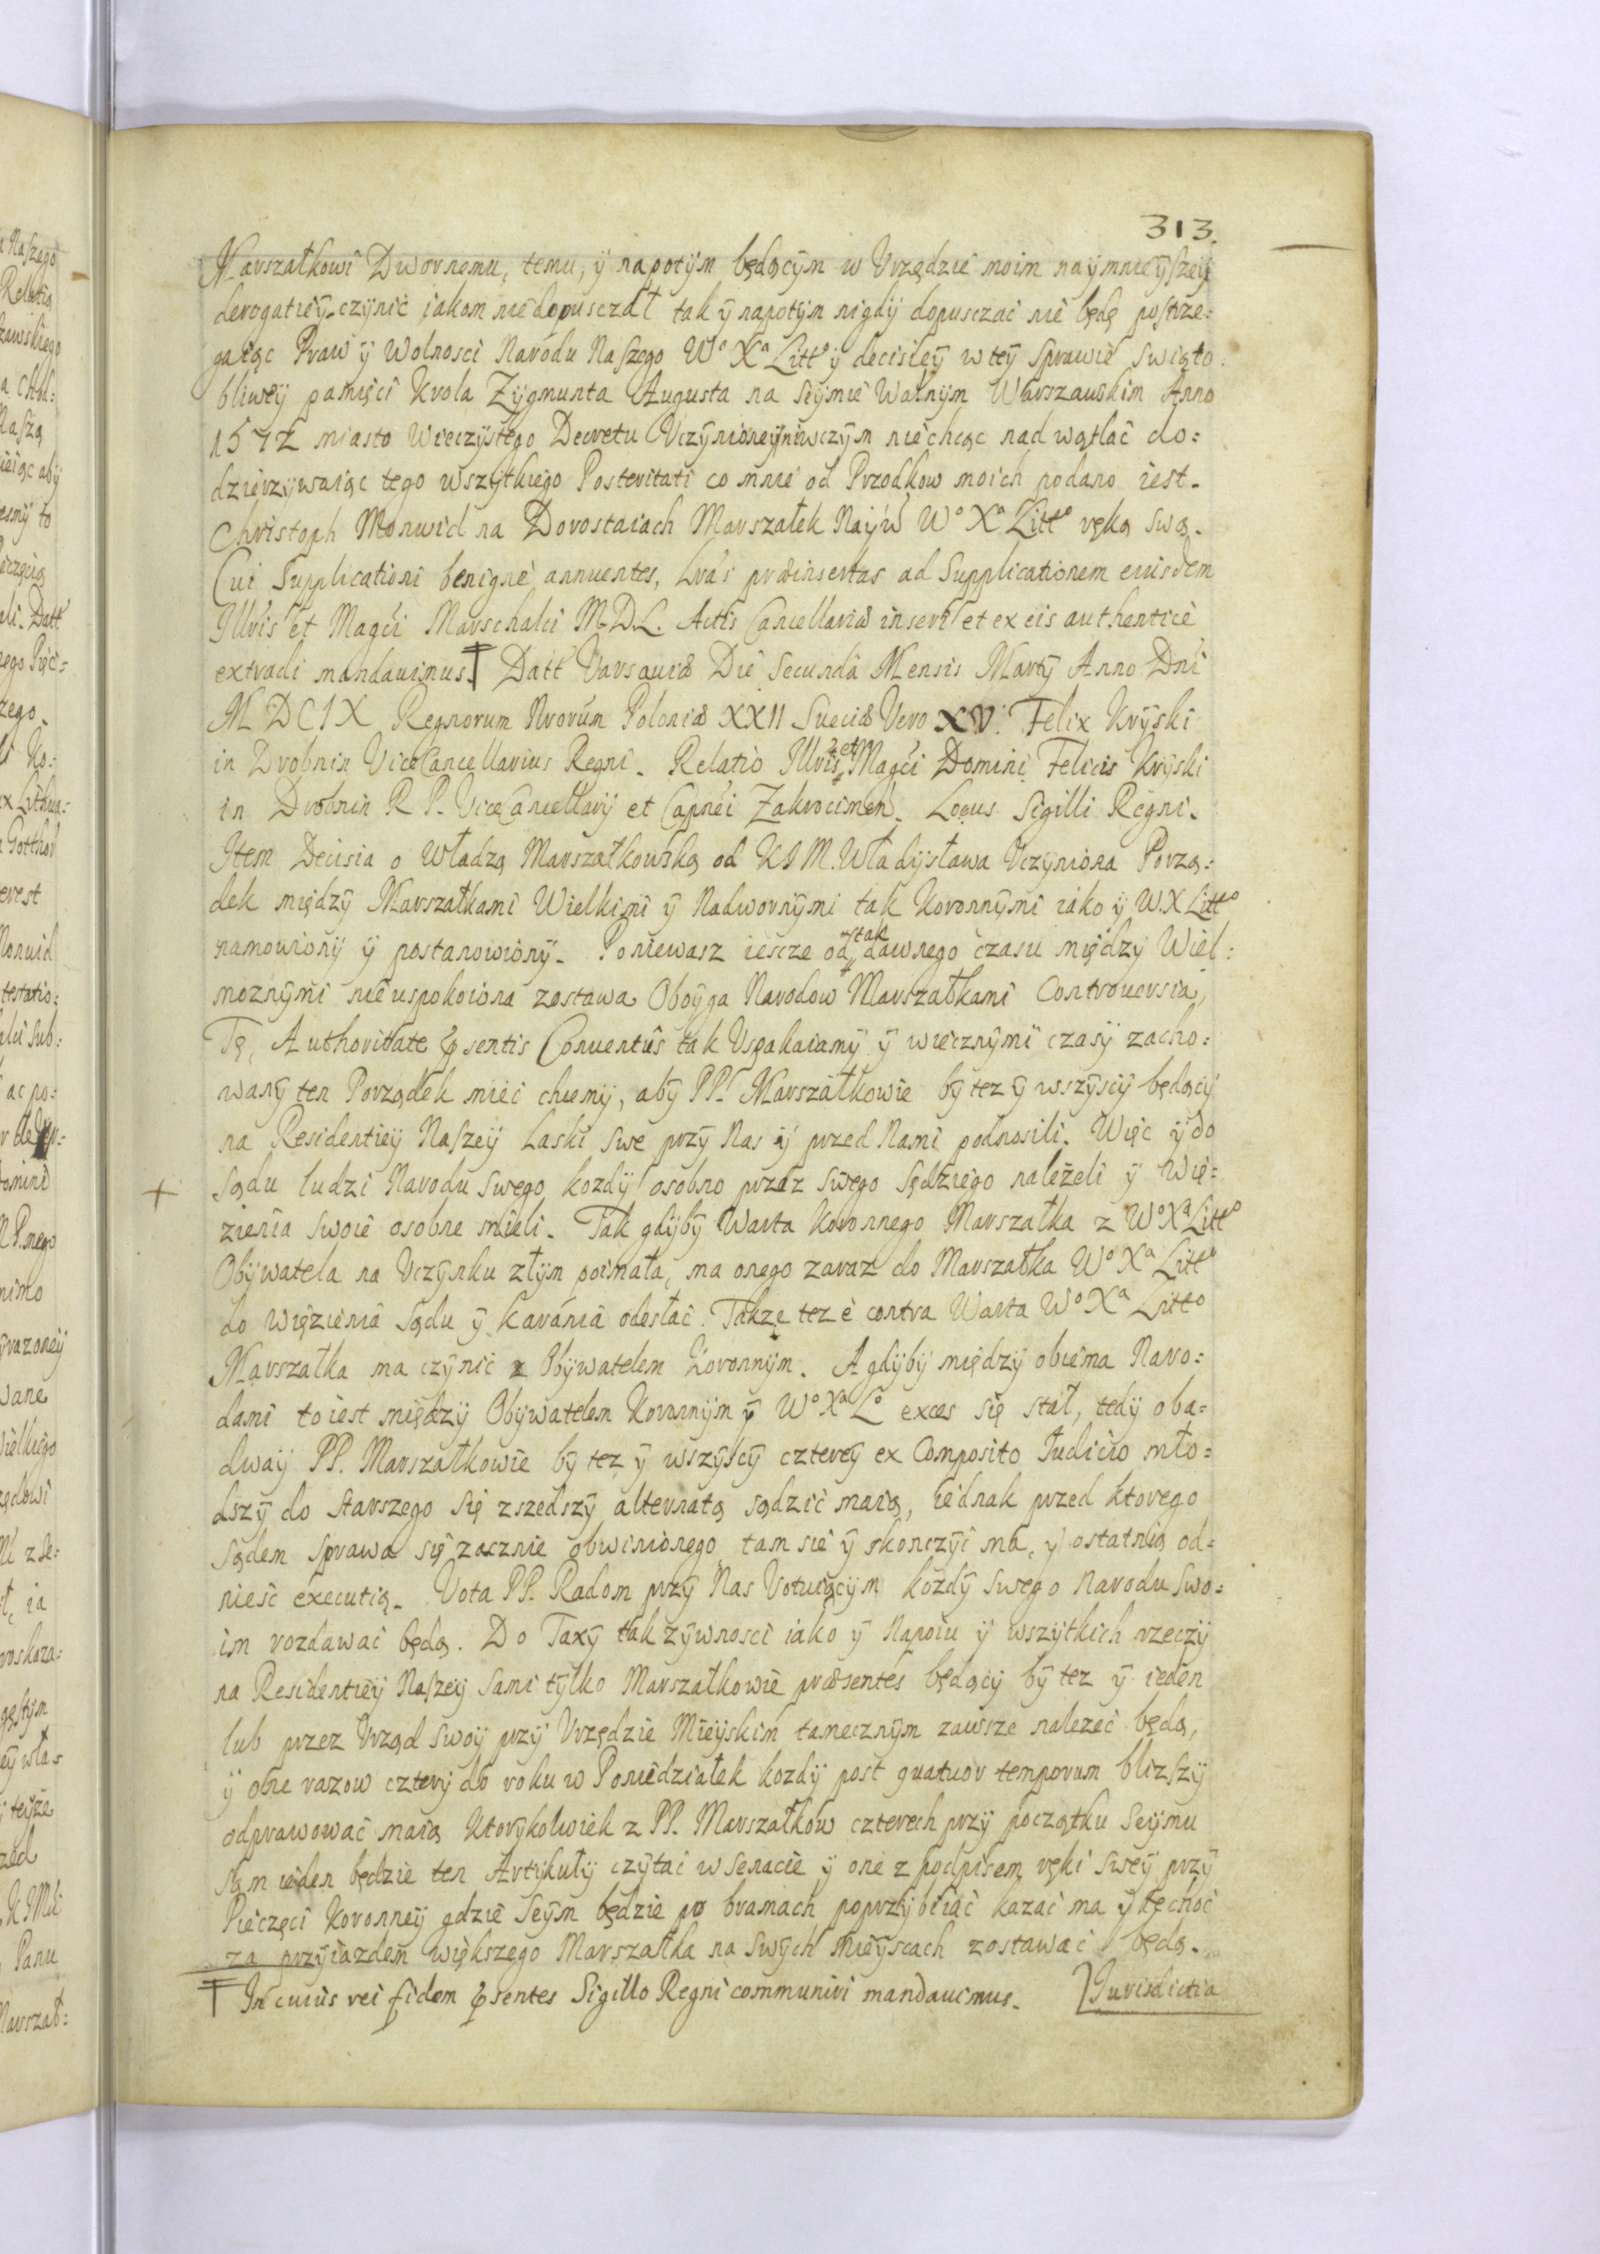 313.
Marszałkowi Dwornemu, temu, ÿ napotÿm będącÿm w Vrzędzie moim naÿmnieÿszeÿ
derogatieÿ czÿnić iakom nie dopusczał tak ÿ napotÿm nigdÿ dopusczać nie będę postrze:
gaiąc Praw ÿ Wolnosci Narodu Naszego Wᵒ Xᵃ Littᵒ ÿ decisieÿ w teÿ sprawie swiąto:
bliweÿ pamięci Krola Zÿgmunta Augusta na Seÿmie Walnÿm Warszawskim Anno
1572 miasto Wieczÿstego Decretu Vczÿnioneÿ niwczÿm niechcąc nadwątlać do:
dzierzÿwaiąc tego wszÿtkiego Posteritati co mnie od Przodkow moich podano iest.
Christoph Monwid na Dorostaiach Marszałek Naÿw Wᵒ Xᵃ Littᵒ ręką swą.
Cui Supplicationi benignè annuentes, Lrás præinsertas ad Supplicationem eiusdem
Illris et Magci Marschalci M.D.L. Actis Cancellariæ inseri et ex eis authenticè
extradi mandauimus. Datt Varsauiæ Die Secunda Mensis Martÿ Anno Dni
MDCIX Regnorum Nrorum Poloniæ XXII Sueciæ Vero XV. Felix Krÿski
in Drobnin ViceCancellarius Regni. Relatio Illris et Magci Domini Felicis Krÿski
in Drobnin R P. ViceCancellarÿ et Capnei Zakrocimen. Locus Sigilli Regni.
Item Decisia o Władzą Marszałkowską od KIM. Władÿsława Vczÿniona Porzą:
dek międzÿ Marszałkami Wielkimi ÿ Nadwornÿmi tak Koronnÿmi iako ÿ W.X Littᵒ
namowionÿ ÿ postanowionÿ. Poniewasz iescze od tak dawnego czasu międzÿ Wiel:
moznÿmi nieuspokoiona zostawa Oboÿga Narodow Marszałkami Controuersia,
Tę, Authoritate Psentis Conuentûs tak Vspakaiamÿ ÿ wiecznÿmi czasÿ zacho:
wanÿ ten Porządek mieć chcemÿ, abÿ PP. Marszałkowie bÿ tez ÿ wszÿscÿ będącÿ
na Residentieÿ Naszeÿ Laski swe przÿ Nas ÿ przed Nami podnosili. Więc ÿ do
Sądu ludzi Narodu swego kozdÿ osobno przez swego Sędziego należeli ÿ Wię:
zienia swoie osobne mieli. Tak gdÿbÿ Warta Koronnego Marszałka z Wᵒ Xᵃ Littᵒ
Obÿwatela na Vczÿnku złÿm poimała, ma onego zaraz do Marszałka Wᵒ Xᵃ Littᵒ
do Więzienia Sądu ÿ karánia odesłać. Takze tez è contra Warta Wᵒ Xᵃ Littᵒ
Marszałka ma czÿnić z Obÿwatelem Koronnÿm. A gdÿbÿ międzÿ obiema Naro:
dami to iest międzÿ Obÿwatelem Koronnÿm ÿ Wᵒ Xᵃ Lᵒ exces się stał, tedÿ oba:
dwaÿ PP. Marszałkowie bÿ tez ÿ wszÿscÿ czterej ex Composito Iudicio mło:
dszÿ do starszego się zszedszÿ alternatą sądzić maią, iednak przed ktorego
sądem sprawa się zacznie obwinionego tam sie ÿ skonczÿć ma, ÿ ostatnią od:
niesć executią. Vota PP. Radom przÿ Nas Votuiącÿm kozdÿ swego Narodu swo:
im rozdawać będą. Do Taxÿ tak zÿwnosci iako ÿ Napoiu ÿ wszÿtkich rzeczÿ
na Residentieÿ Naszeÿ sami tÿlko Marszałkowie præsentes będącÿ bÿ tez ÿ ieden
lub przez Vrząd swoÿ przÿ Vrzędzie Mieÿskim tamecznÿm zawsze nalezeć będą,
ÿ one razow czterÿ do roku w Poniedziałek kozdÿ post quatuor temporum blizszÿ
odprawować maią Ktorÿkolwiek z PP. Marszałkow czterech przÿ początku Seÿmu
sam ieden będzie ten Artÿkułÿ czÿtać w Senacie ÿ one z podpisem ręki sweÿ przÿ
Pieczęci Koronneÿ gdzie Seÿm będzie po bramach poprzÿbiiać kazać ma ÿ te choć
za przÿiazdem większego Marszałka na swÿch mieÿscach zostawać będą.
In cuius rei fidem Psentes Sigillo Regni communiri mandauimus.
Iurisdictia